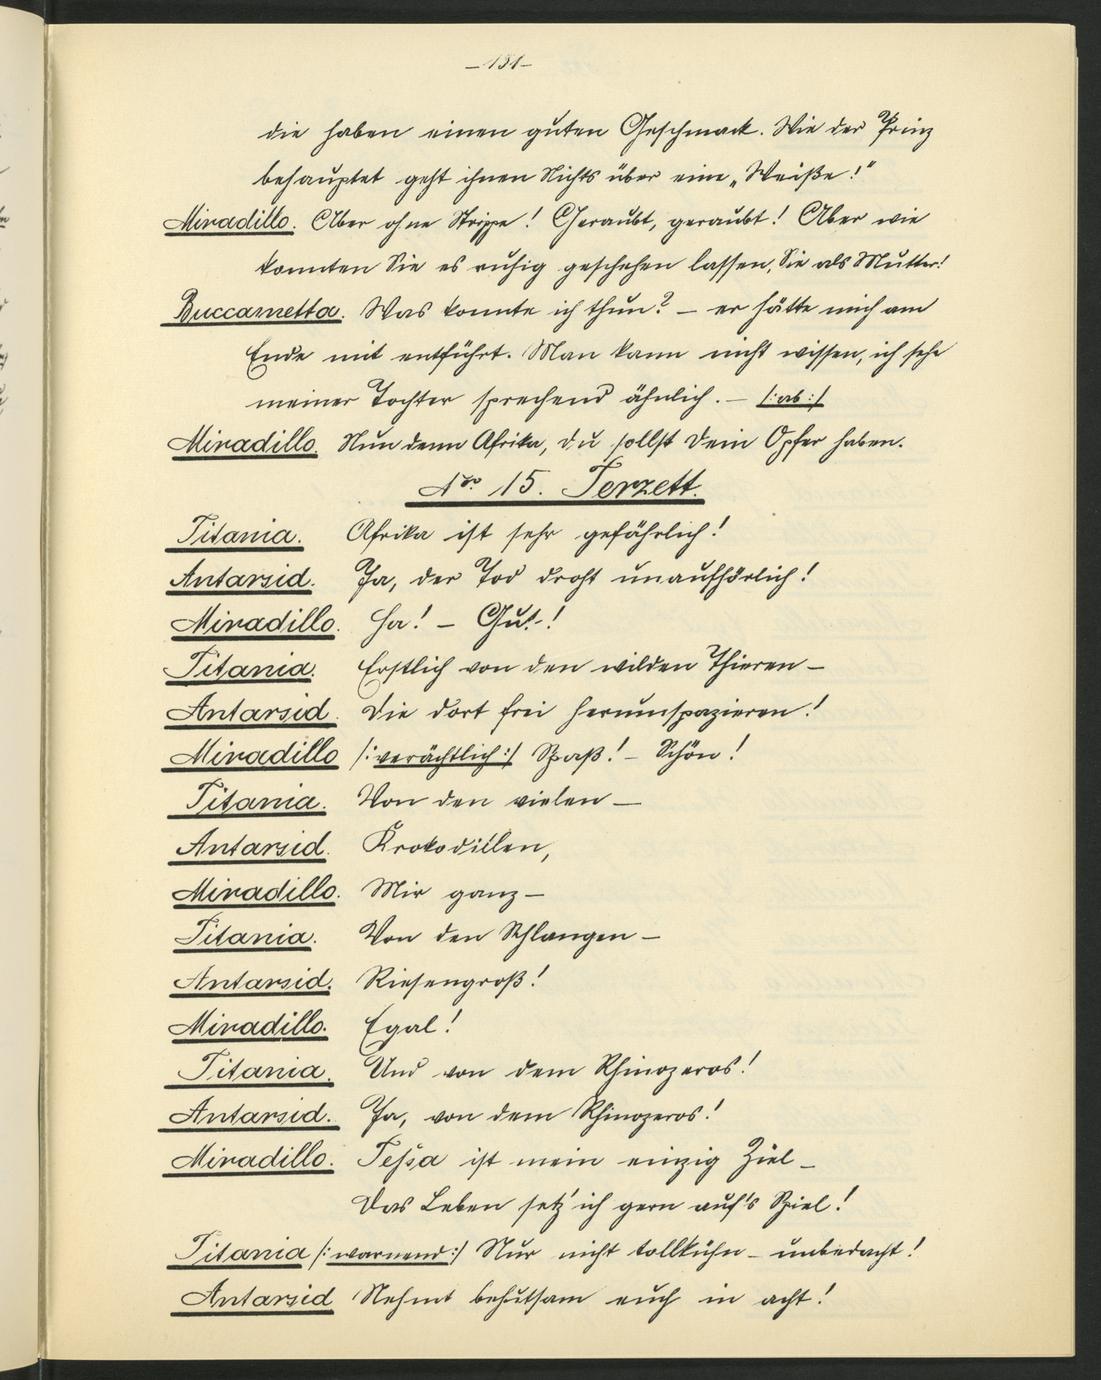 –151–
die haben einen guten Geschmack. Wie der Prinz
behauptet geht ihnen Nichts über eine „Weiße!"
Miradillo. Aber ohne Strippe! Geraubt, geraubt! Aber wie
konnten Sie es ruhig geschehen lassen, Sie als Mutter!
Buccametta. Was konnte ich thun? – er hätte mich am
Ende mit entführt. Man kann nicht wissen, ich sehe
meiner Tochter sprechend ähnlich. – /: ab :/
Miradillo. Nun denn Afrika, du sollst dein Opfer haben.
No. 15. Terzett.
Titania. Afrika ist sehr gefährlich!
Antarsid. Ja, der Tod droht unaufhörlich!
Miradillo. Ha! – Gut!
Titania. Erstlich von den wilden Thieren –
Antarsid. Die dort frei herumspazieren!
Miradillo /: verächtlich :/ Spaß! – Schön!
Titania. Von den vielen –
Antarsid. Krokodillen,
Miradillo. Mir ganz –
Titania. Von den Schlangen –
Antarsid. Riesengroß!
Miradillo. Egal!
Titania. Und von dem Rhinozeros!
Antarsid. Ja, von dem Rhinozeros!
Miradillo. Tessa ist mein einzig Ziel –
Das Leben setz' ich gern auf's Spiel!
Titania /: warnend :/ Nur nicht tollkühn – unbedacht!
Antarsid Nehmt behutsam euch in acht!